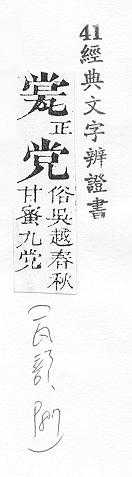 41經典文字辨證書
瓽正
党俗吳越春秋
甘蜜九党
(瓦部